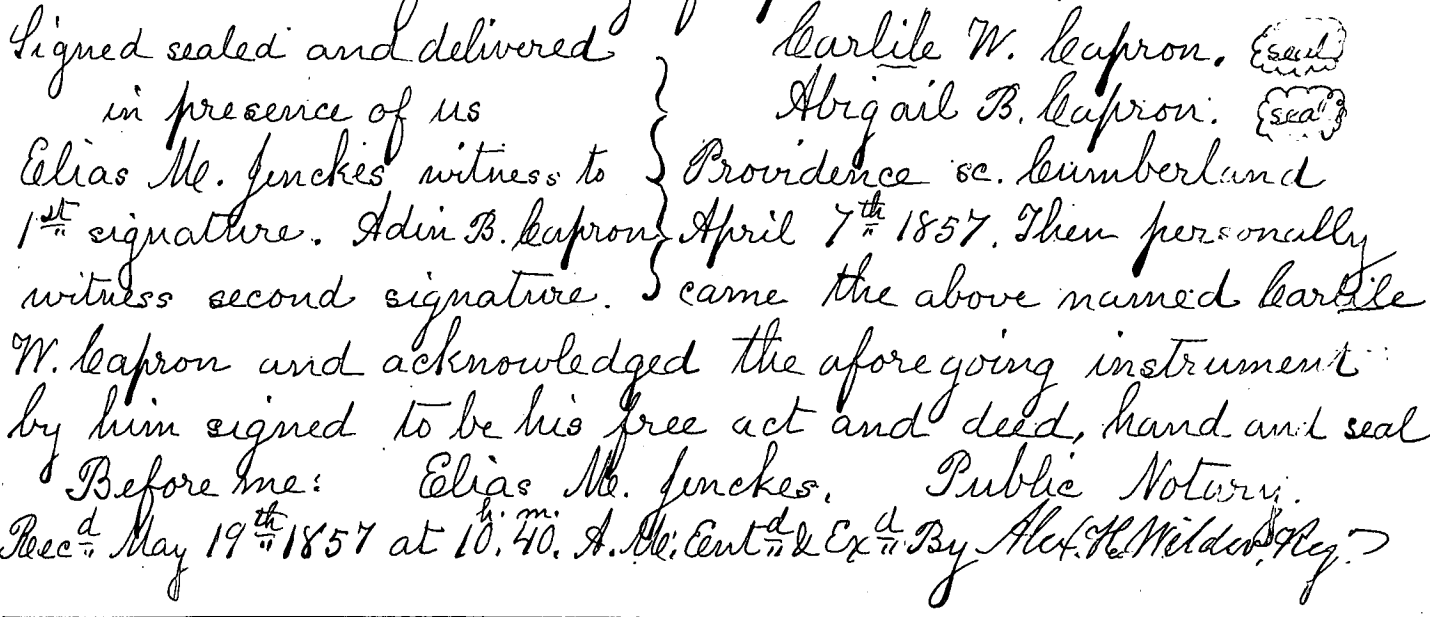 Signed sealed and delivered
in presence of us
Elias M. Jenckes witness to
1st signature. Adin B. Capron
witness second signature.
Carlile W. Capron. seal
Abigail B. Capron. seal
Providence sc. Cumberland
April 7th 1857. Then personally
came the above named Carlile
W. Capron and acknowledged the aforegoing instrument
by him signed to be his free act and deed, hand and seal
Before me: Elias M. Jenckes. Public Notary.
Recd May 19th 1857 at 10h. 40m. A.M. Entd & Exd By Alex. H. Wilder, Reg.